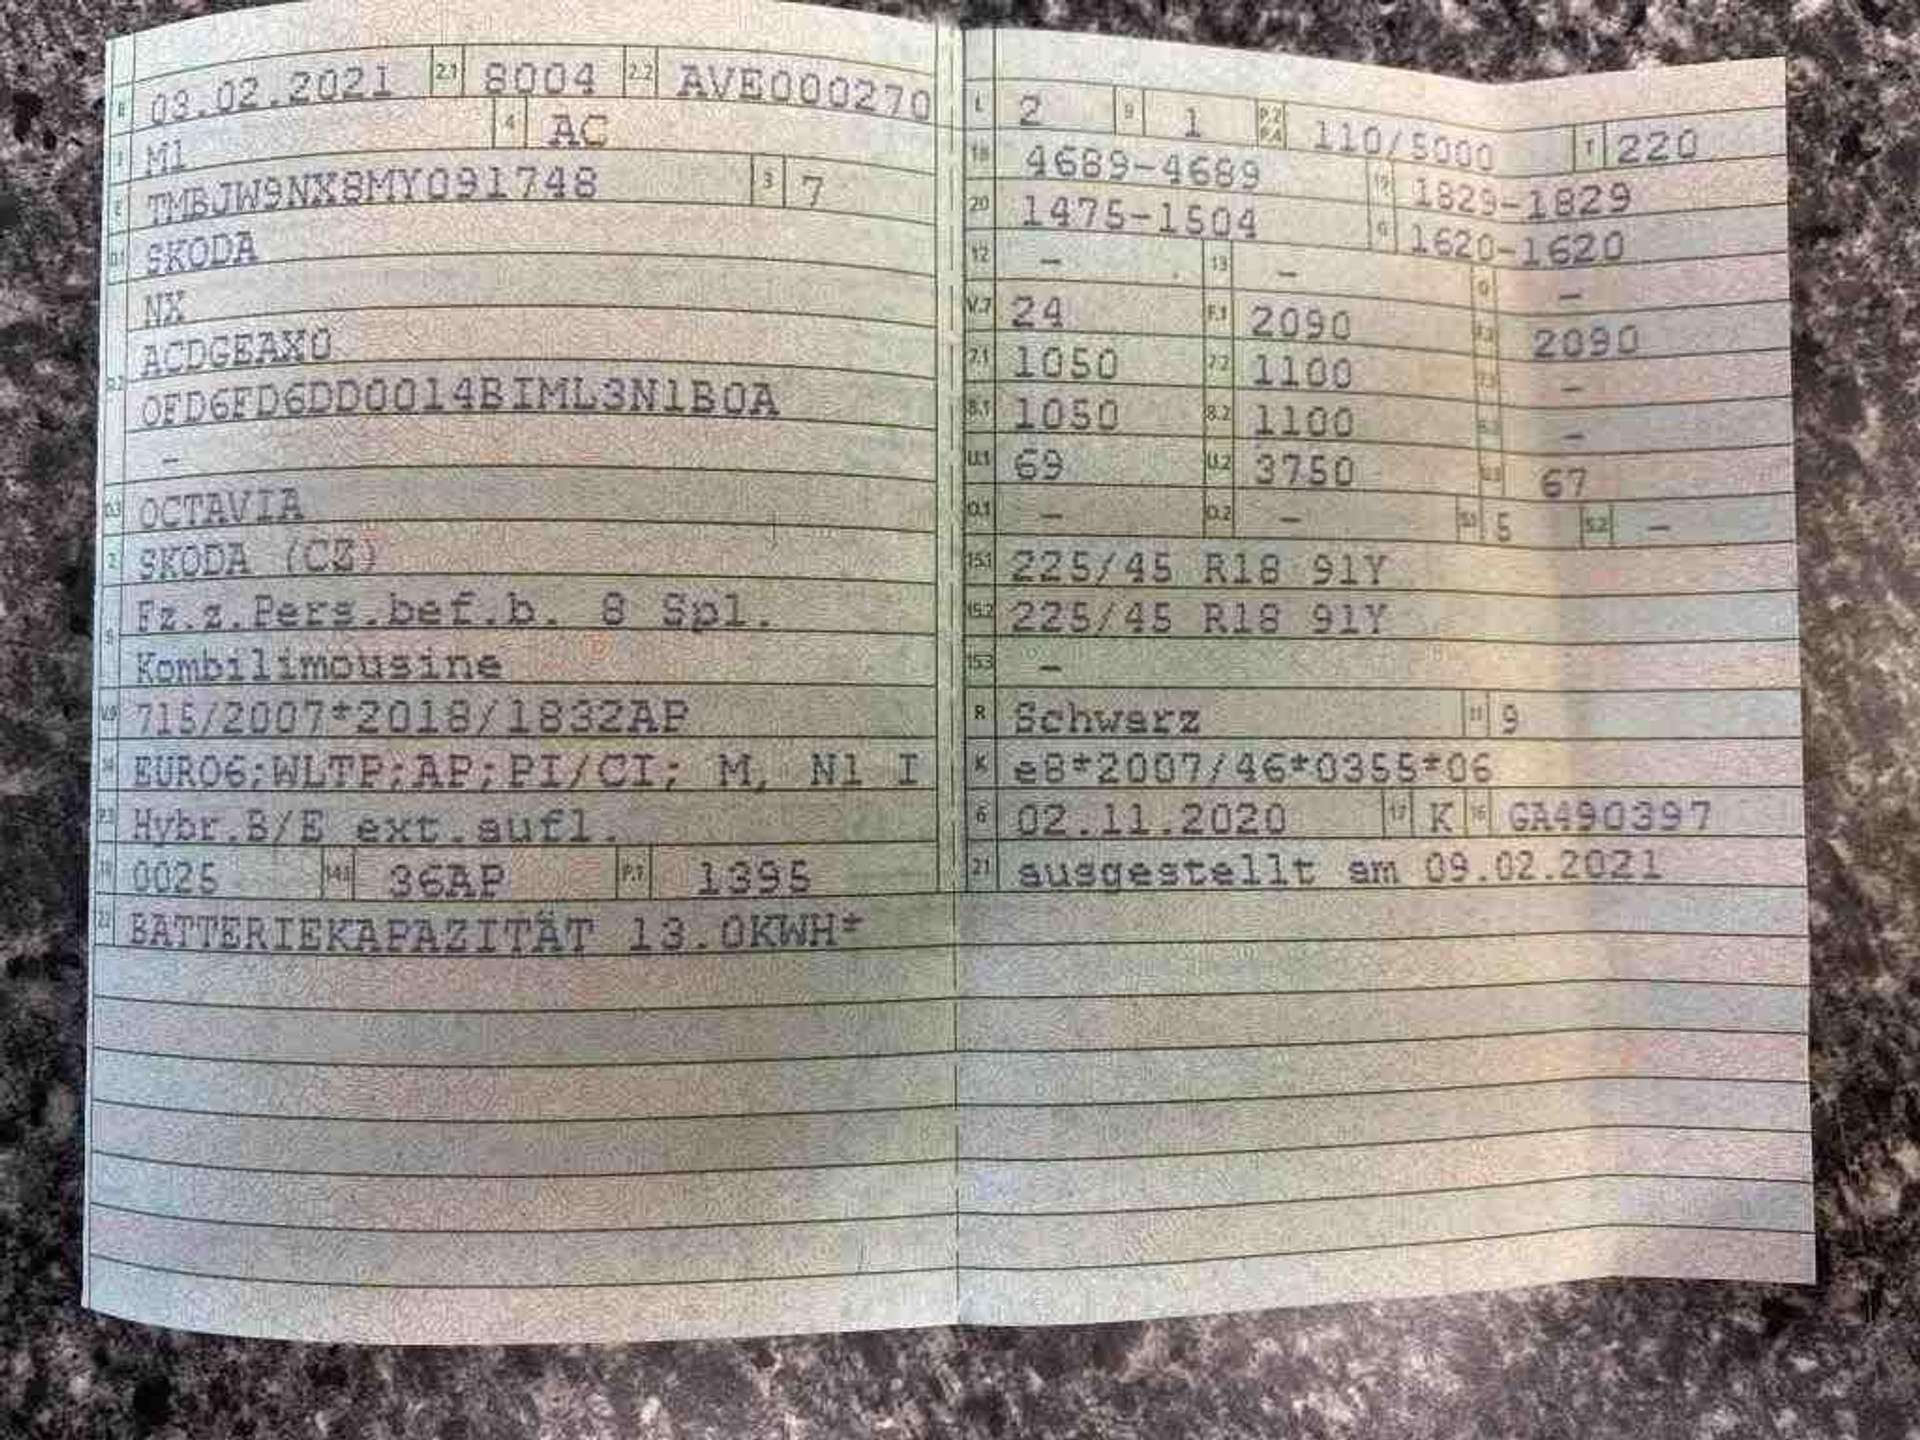 B 03.02.2021 2.1 8004 2.2 AVE000270
J M1 4 AC
E TMBJW9NX8MY091748 3 7
D.1 SKODA
NX
D.2 ACDGEAX0
OFD6FD6DD0014BIML3N1B0A
-
D.3 OCTAVIA
2 SKODA (CZ)
5 Fz.z.Pers.bef.b. 8 Spl.
Kombilimousine
V.9 715/2007*2018/1832AP
14 EURO6;WLTP;AP;PI/CI; M, N1 I
P.3 Hybr.B/E ext.aufl.
10 0025 14.1 36AP P.1 1395
22 BATTERIEKAPAZITÄT 13.0KWH*
L 2 9 1 P.2 P.4 110/5000 T 220
18 4689-4689 19 1829-1829
20 1475-1504 G 1620-1620
12 - 13 - Q -
V.7 24 F.1 2090 F.2 2090
7.1 1050 7.2 1100 7.3 -
8.1 1050 8.2 1100 8.3 -
U.1 69 U.2 3750 U.3 67
O.1 - O.2 - S.1 5 S.2 -
15.1 225/45 R18 91Y
15.2 225/45 R18 91Y
15.3 -
R Schwarz 11 9
K e8*2007/46*0355*06
6 02.11.2020 17 K 16 GA490397
21 ausgestellt am 09.02.2021